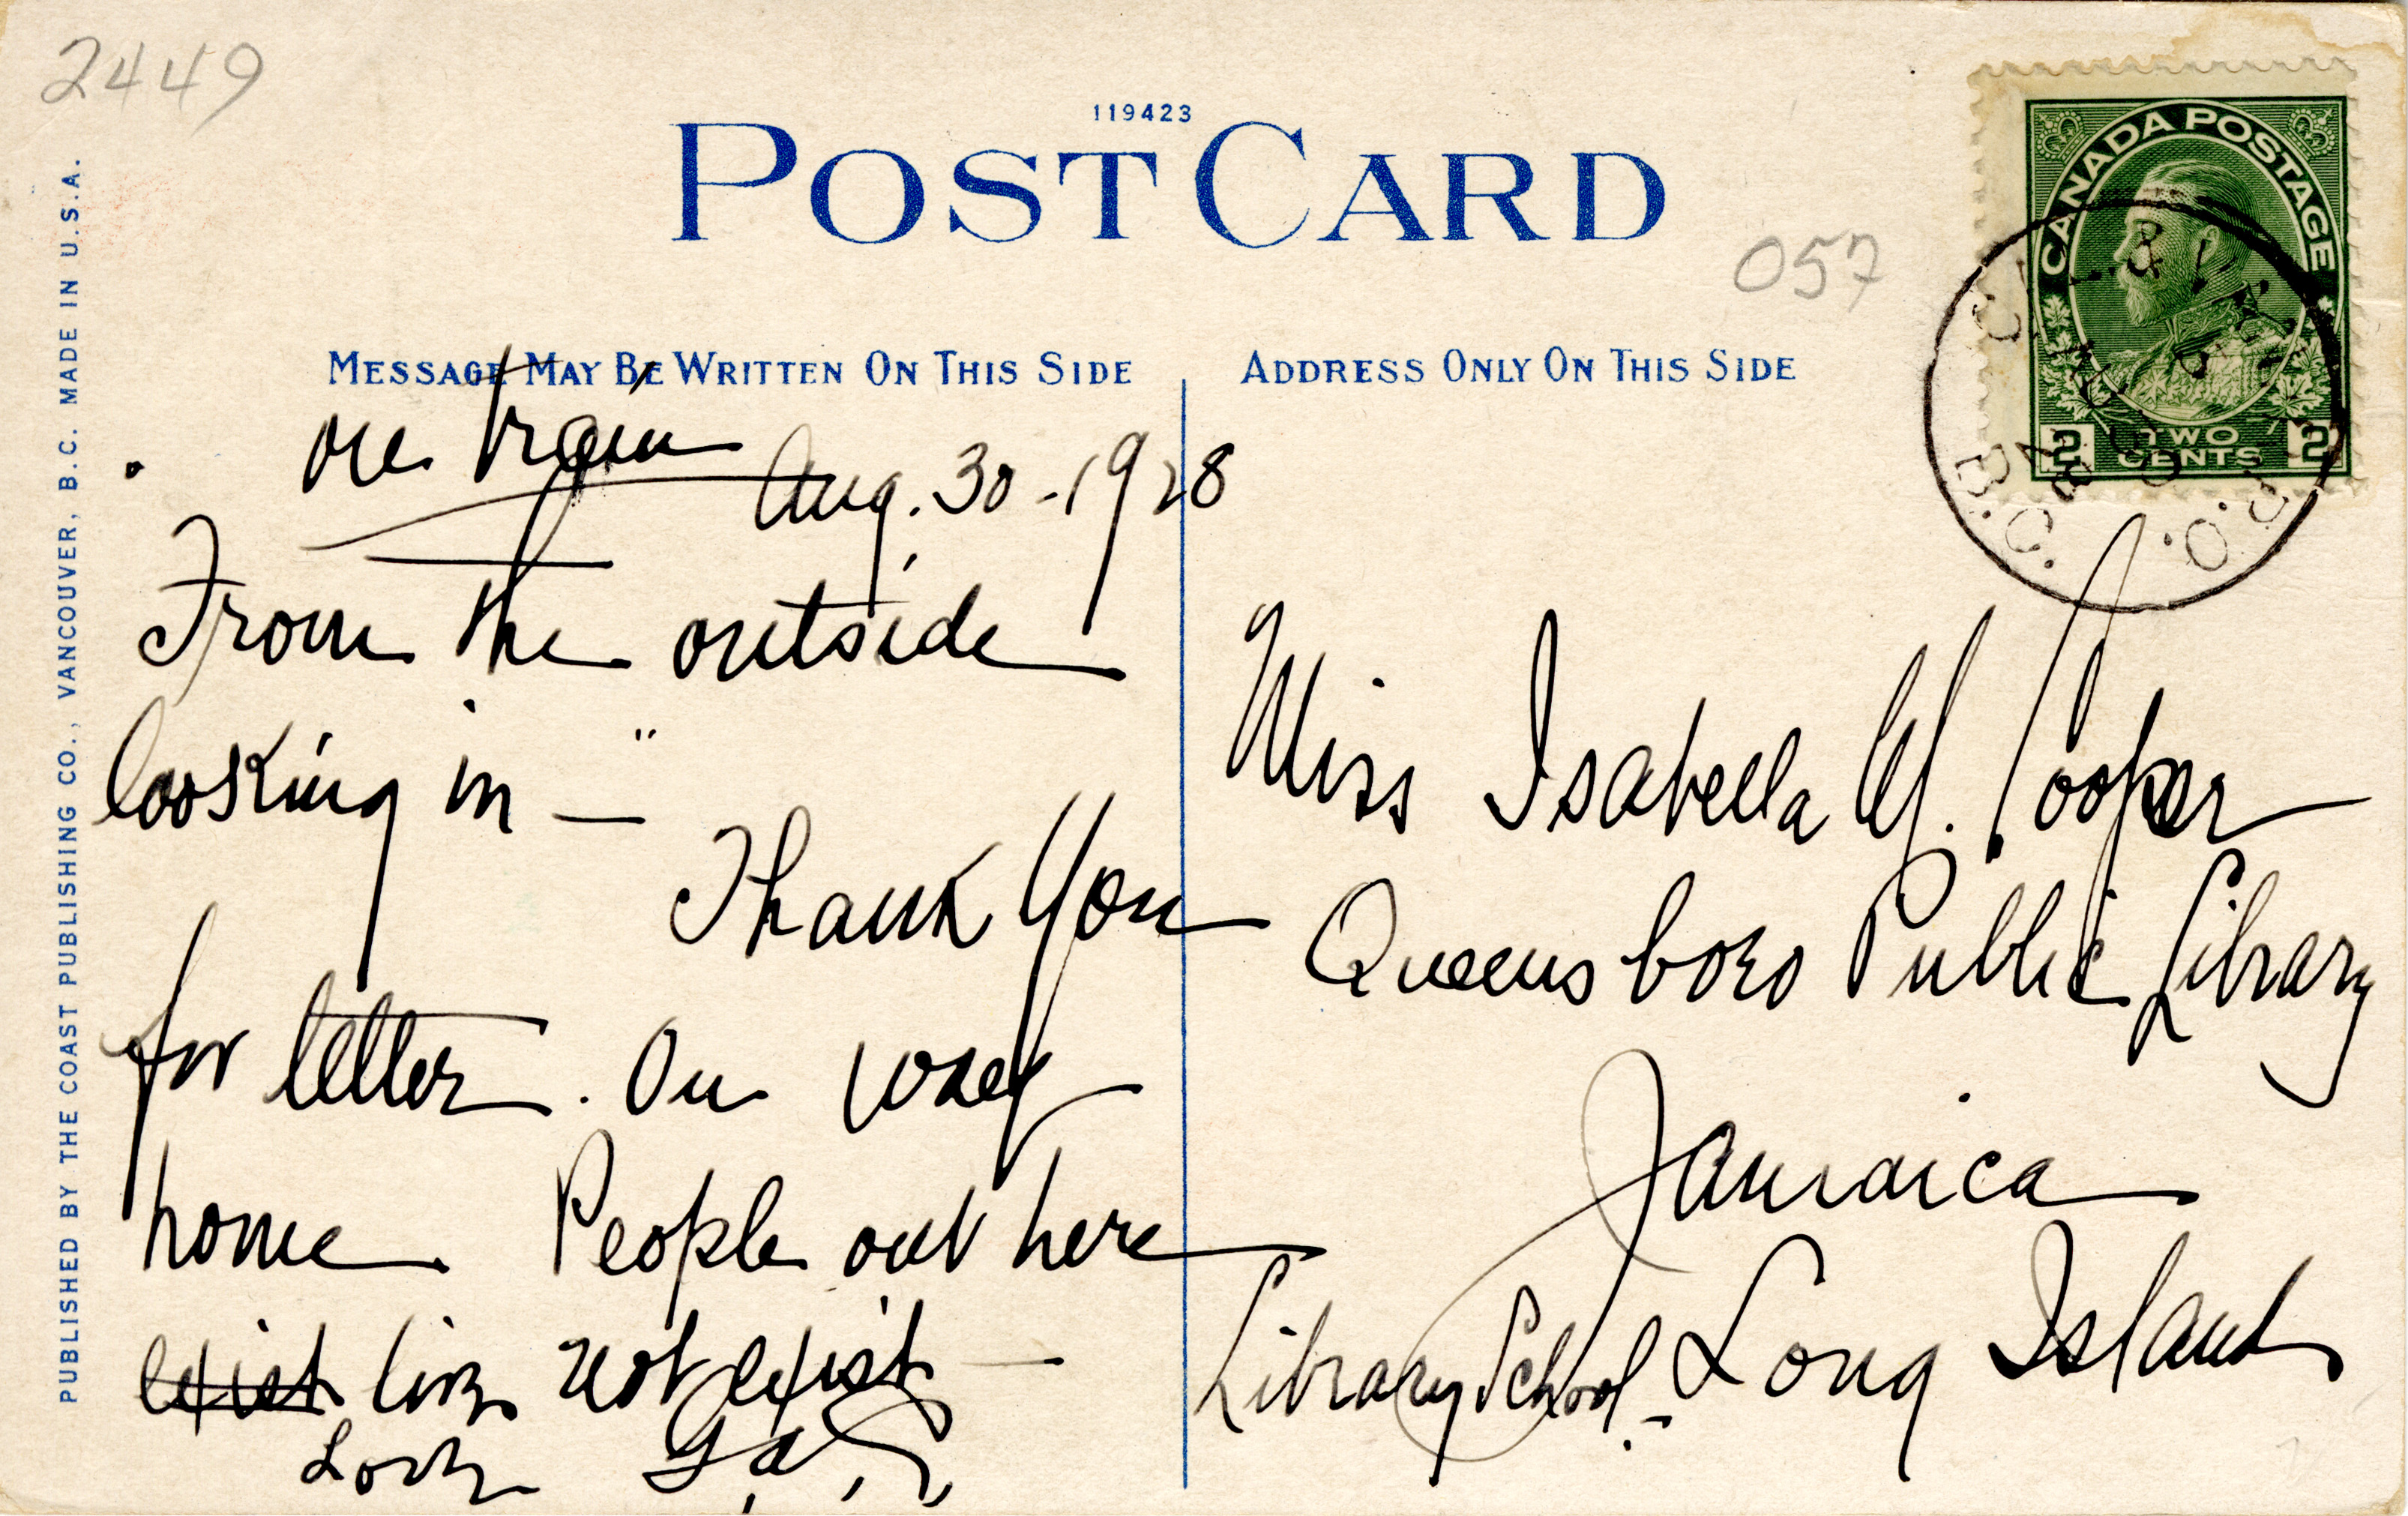 2449
119423
POST CARD
057
CANADA POSTAGE
2 TWO CENTS 2
CAL. & VAN.
R.P.O.
B.C.
PUBLISHED BY THE COAST PUBLISHING CO., VANCOUVER, B.C. MADE IN U.S.A.
MESSAGE MAY BE WRITTEN ON THIS SIDE
on train
Aug. 30 - 1928
From the outside
looking in — "
Thank You
for letter. On way
home People out here
exist live not exist —
Love
ADDRESS ONLY ON THIS SIDE
Miss Isabella M. Cooper
Queensboro Public Library
Jamaica
Library School - Long Island